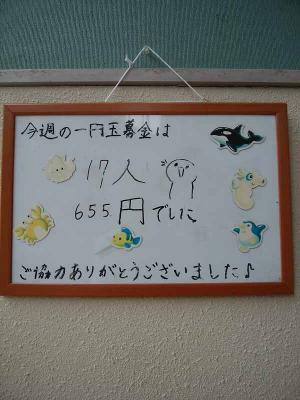 今週の一円玉募金は
17人
655円でした
ご協力ありがとうございました♪